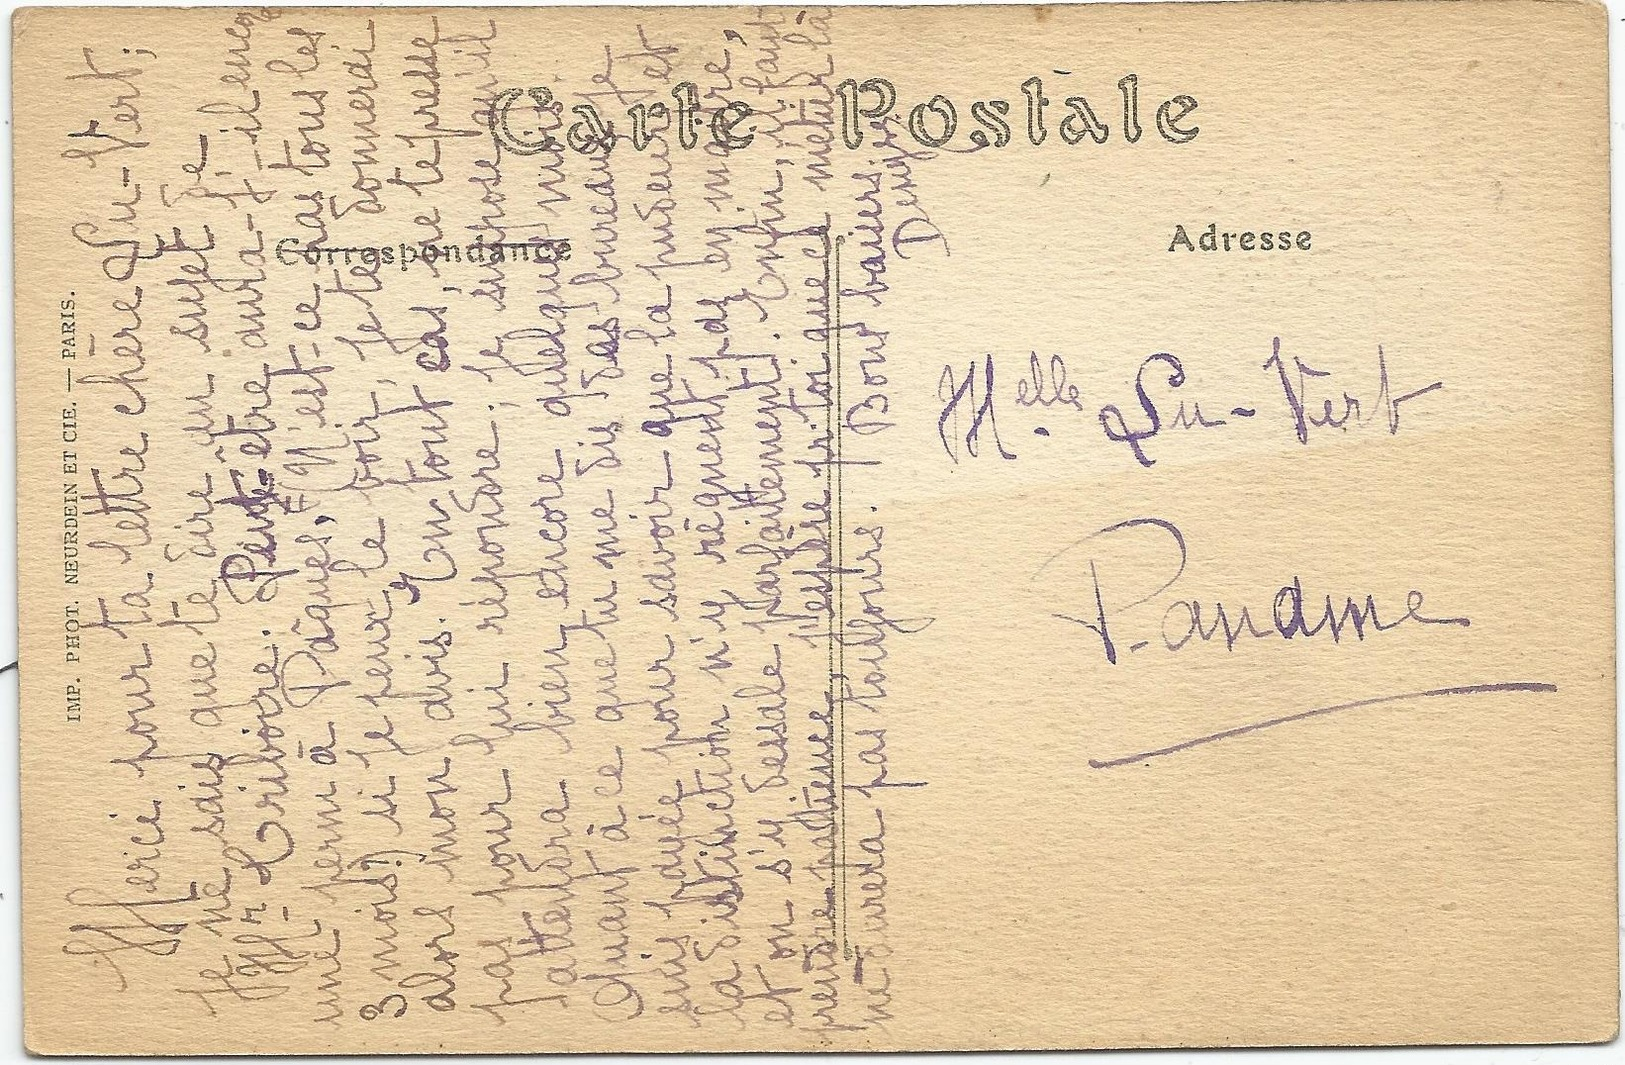 Carte Postale
Correspondance
Adresse
IMP. PHOT. NEURDEIN ET CIE. — PARIS.
Merci pour ta lettre chère Su-Vert;
Je ne sais que te dire au sujet de
Mr Criboire. Peut-être aura-t-il encore
une perm à Pâques, (N'est-ce pas tous les
3 mois?) si je peux le voir, je te donnerai
alors mon avis. En tout cas, ne te presse
pas pour lui répondre; je suppose qu'il
attendra bien encore quelques mois.
Quant à ce que tu me dis des bureaux je
suis payée pour savoir que la pudeur et
la distinction n'y règnent pas en maître,
et on s'y dessale parfaitement. Enfin, il faut
prendre patience, j'espère pr toi que ce métier là
ne durera pas toujours. Bons baisers
Denyse
Melle Su-Vert
Paname